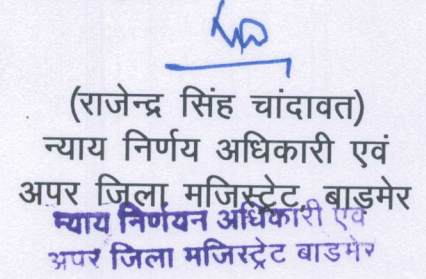 (राजेन्द्र सिंह चांदावत)
न्याय निर्णय अधिकारी एवं
अपर जिला मजिस्ट्रेट, बाडमेर
न्याय निर्णयन अधिकारी एवं
अपर जिला मजिस्ट्रेट बाडमेर